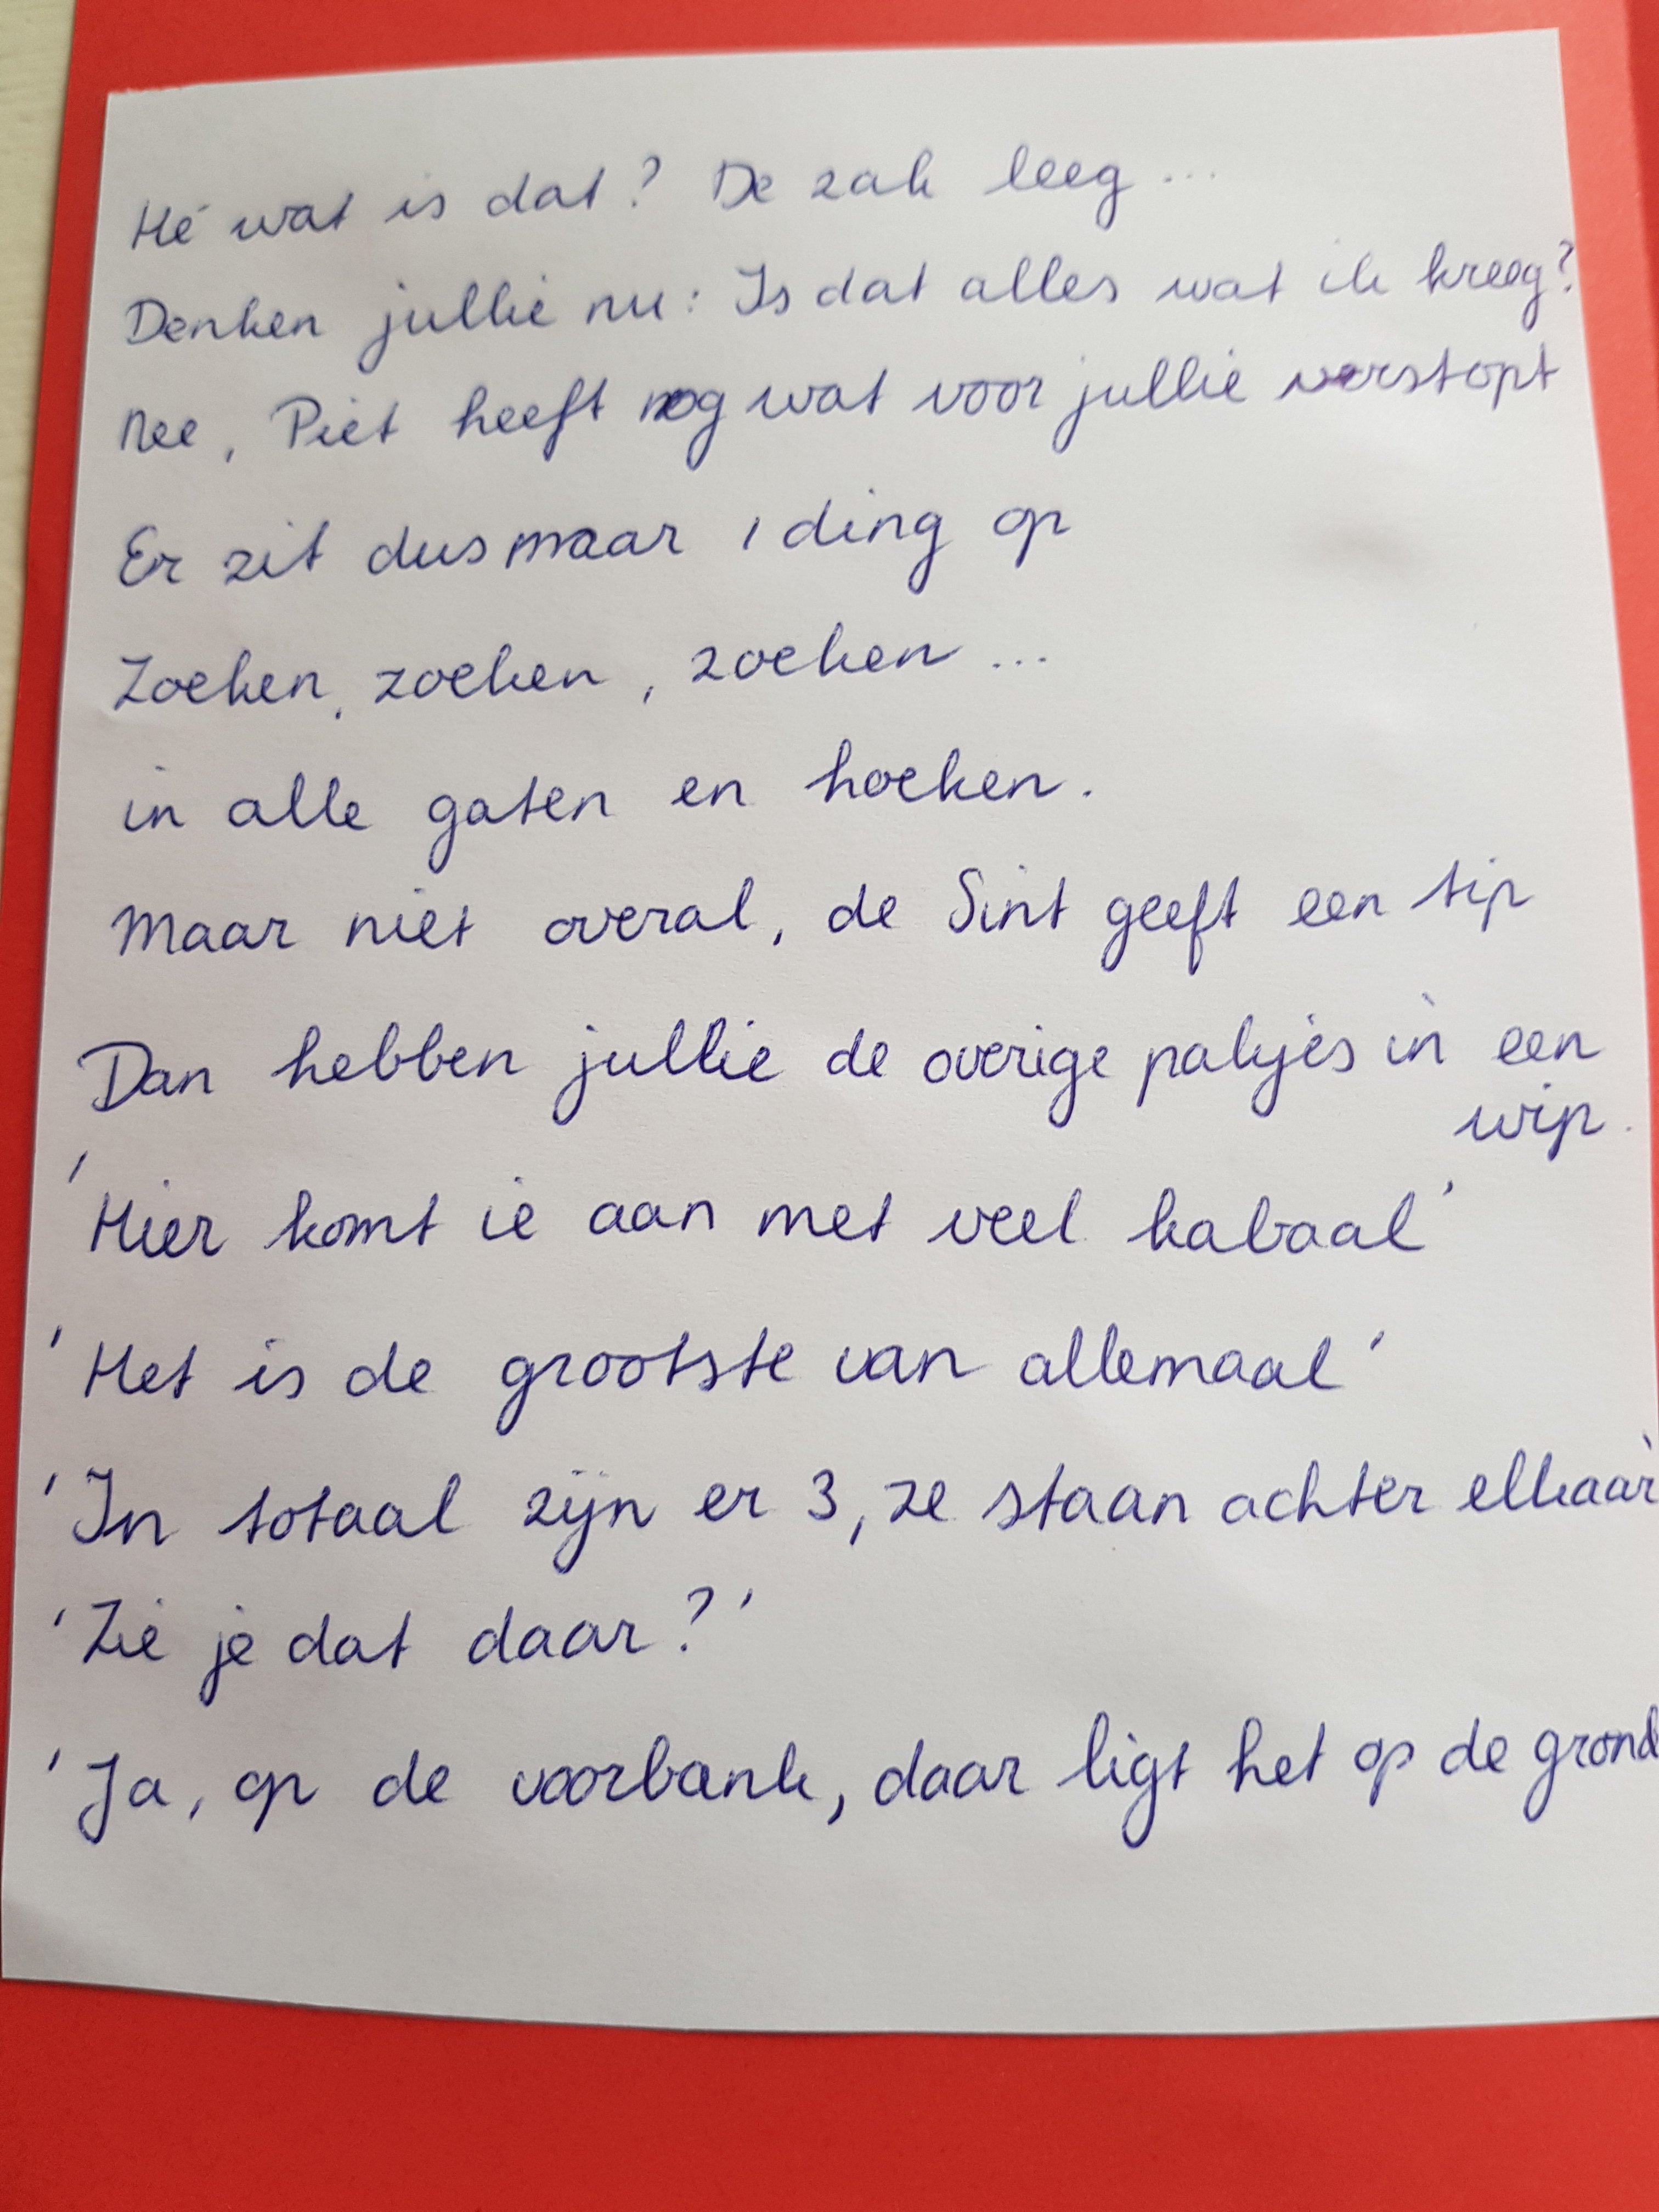 Hé wat is dat? De zak leeg...
Denken jullie nu: Is dat alles wat ik kreeg?
Nee, Piet heeft nog wat voor jullie verstopt
Er zit dus maar 1 ding op
Zoeken, zoeken, zoeken...
in alle gaten en hoeken.
Maar niet overal, de Sint geeft een tip
Dan hebben jullie de overige pakjes in een
wip.
'Hier komt ie aan met veel kabaal'
'Het is de grootste van allemaal'
'In totaal zijn er 3, ze staan achter elkaar'
'Zie je dat daar?'
'Ja, op de voorbank, daar ligt het op de grond